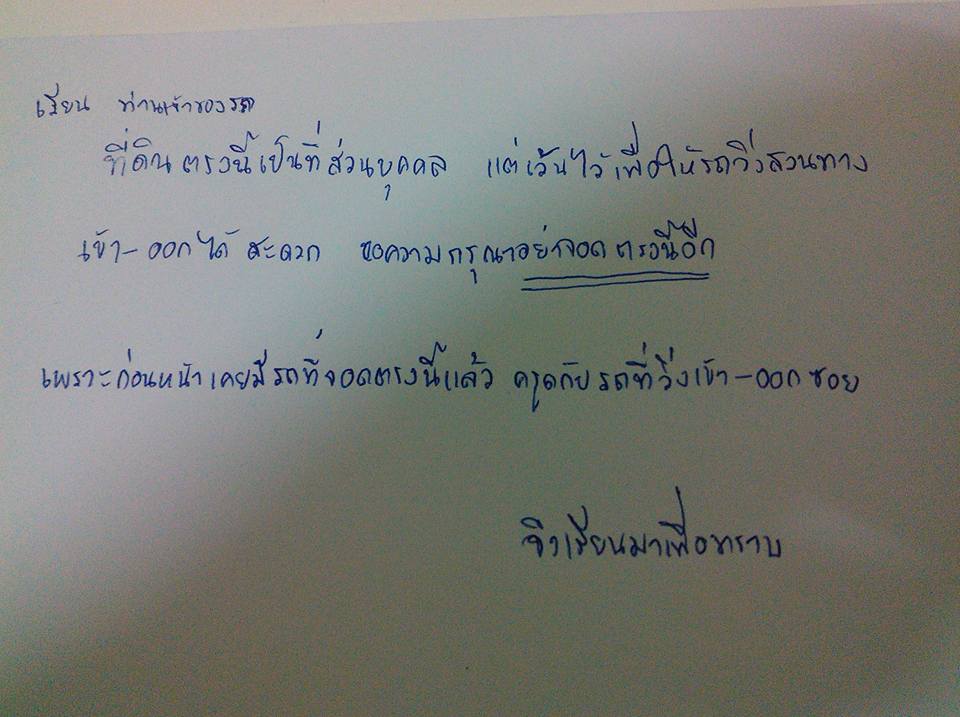 เรียน ท่านเจ้าของรถ
ที่ดินตรงนี้เป็นที่ส่วนบุคคล แต่เว้นไว้เพื่อให้รถวิ่งสวนทาง
เข้า-ออกได้สะดวก ขอความกรุณาอย่าจอดตรงนี้อีก
เพราะก่อนหน้าเคยมีรถที่จอดตรงนี้แล้ว ครูดกับรถที่วิ่งเข้า-ออกซอย
จึงเรียนมาเพื่อทราบ